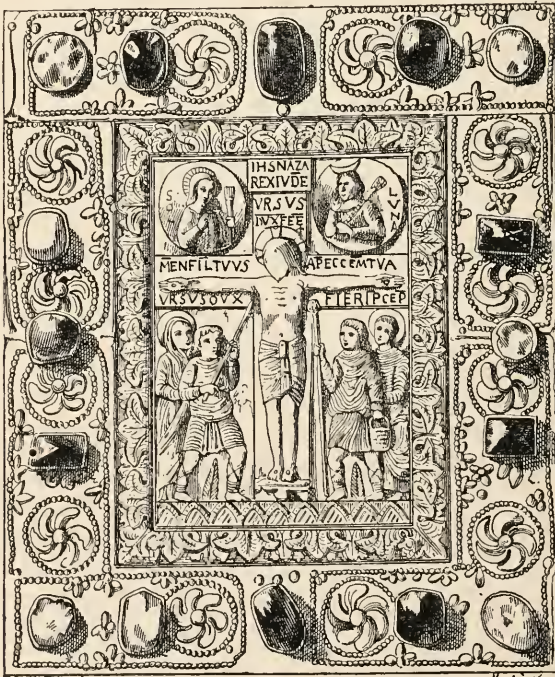 IHSNAZA
REXIVDE
VRSVS
IVXFEE
S
LVN
MENFILTVVS APECCEMTVA
VRSUSDUX FIERIPCEP